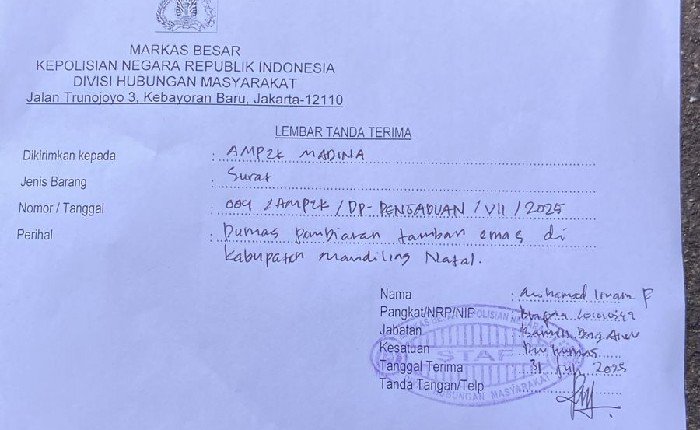 MARKAS BESAR
KEPOLISIAN NEGARA REPUBLIK INDONESIA
DIVISI HUBUNGAN MASYARAKAT
Jalan Trunojoyo 3, Kebayoran Baru, Jakarta-12110
LEMBAR TANDA TERIMA
Dikirimkan kepada : AMP2K MADINA
Jenis Barang : Surat
Nomor / Tanggal : 009 /AMP2K / DP- PENGADUAN / VII / 2025
Perihal : Dumas tamban emas di
kabupaten Mandiling Natal.
Nama :
Pangkat/NRP/NIP :
Jabatan :
Kesatuan : Div humas
Tanggal Terima : 31 Juli 2025
Tanda Tangan/Telp :
KEPOLISIAN
STAF
HUBUNGAN MASYARAKAT